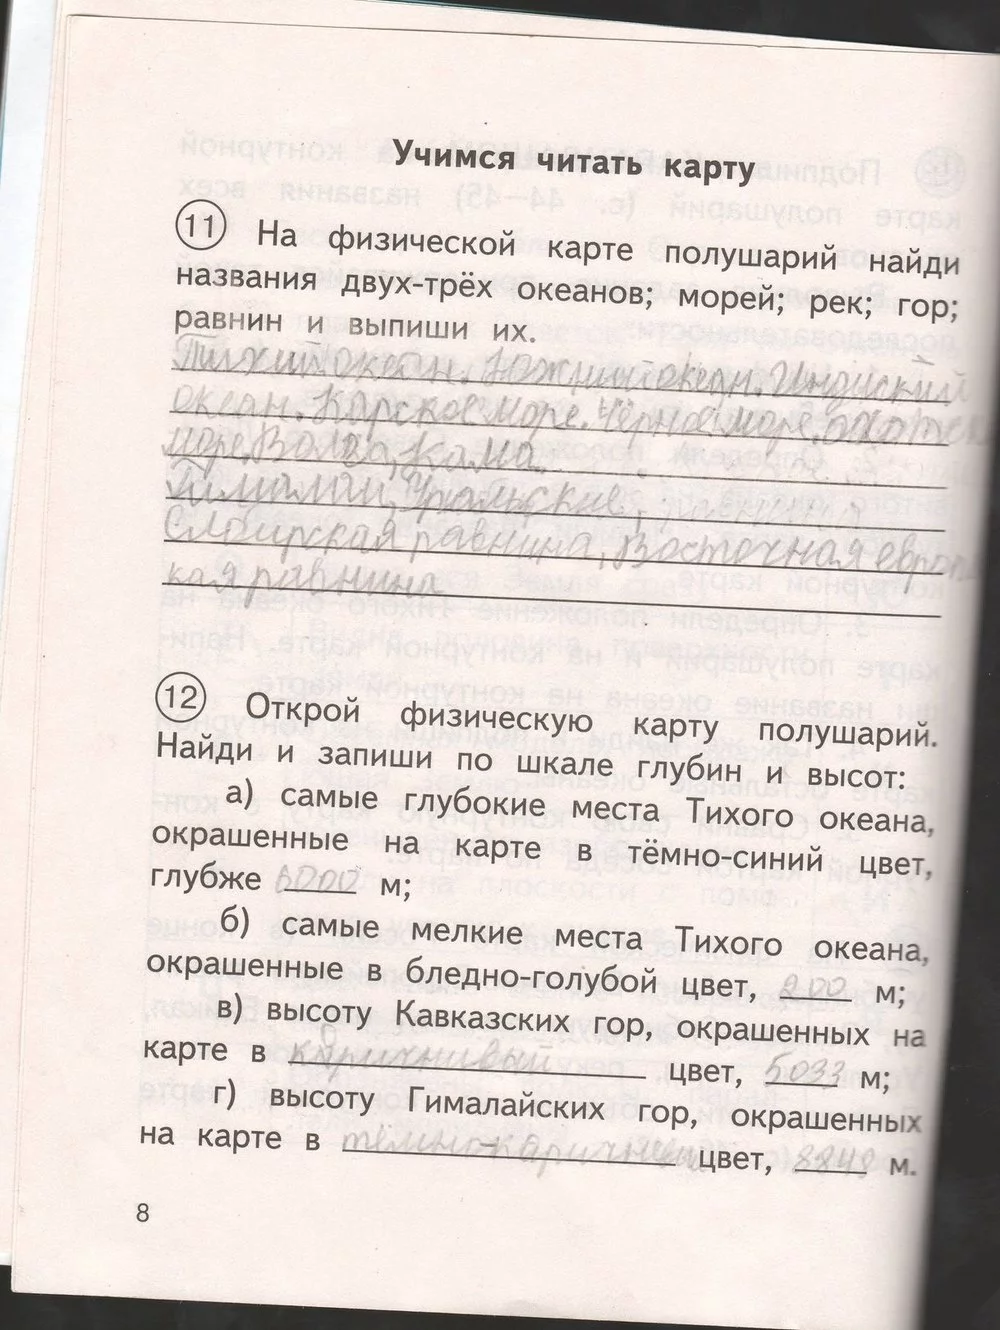 Учимся читать карту
11 На физической карте полушарий найди
названия двух-трёх океанов; морей; рек; гор;
равнин и выпиши их.
Тихий океан. Южный океан. Индиский
океан. Карское море. Чёрное море.
море. Волга, Кама
Гималаи, Уральские,
равнина, Восточная
кая равнина
12 Открой физическую карту полушарий.
Найди и запиши по шкале глубин и высот:
а) самые глубокие места Тихого океана,
окрашенные на карте в тёмно-синий цвет,
глубже 6000 м;
б) самые мелкие места Тихого океана,
окрашенные в бледно-голубой цвет, 200 м;
в) высоту Кавказских гор, окрашенных на
карте в цвет, 5033 м;
г) высоту Гималайских гор, окрашенных
на карте в цвет, 8848 м.
8